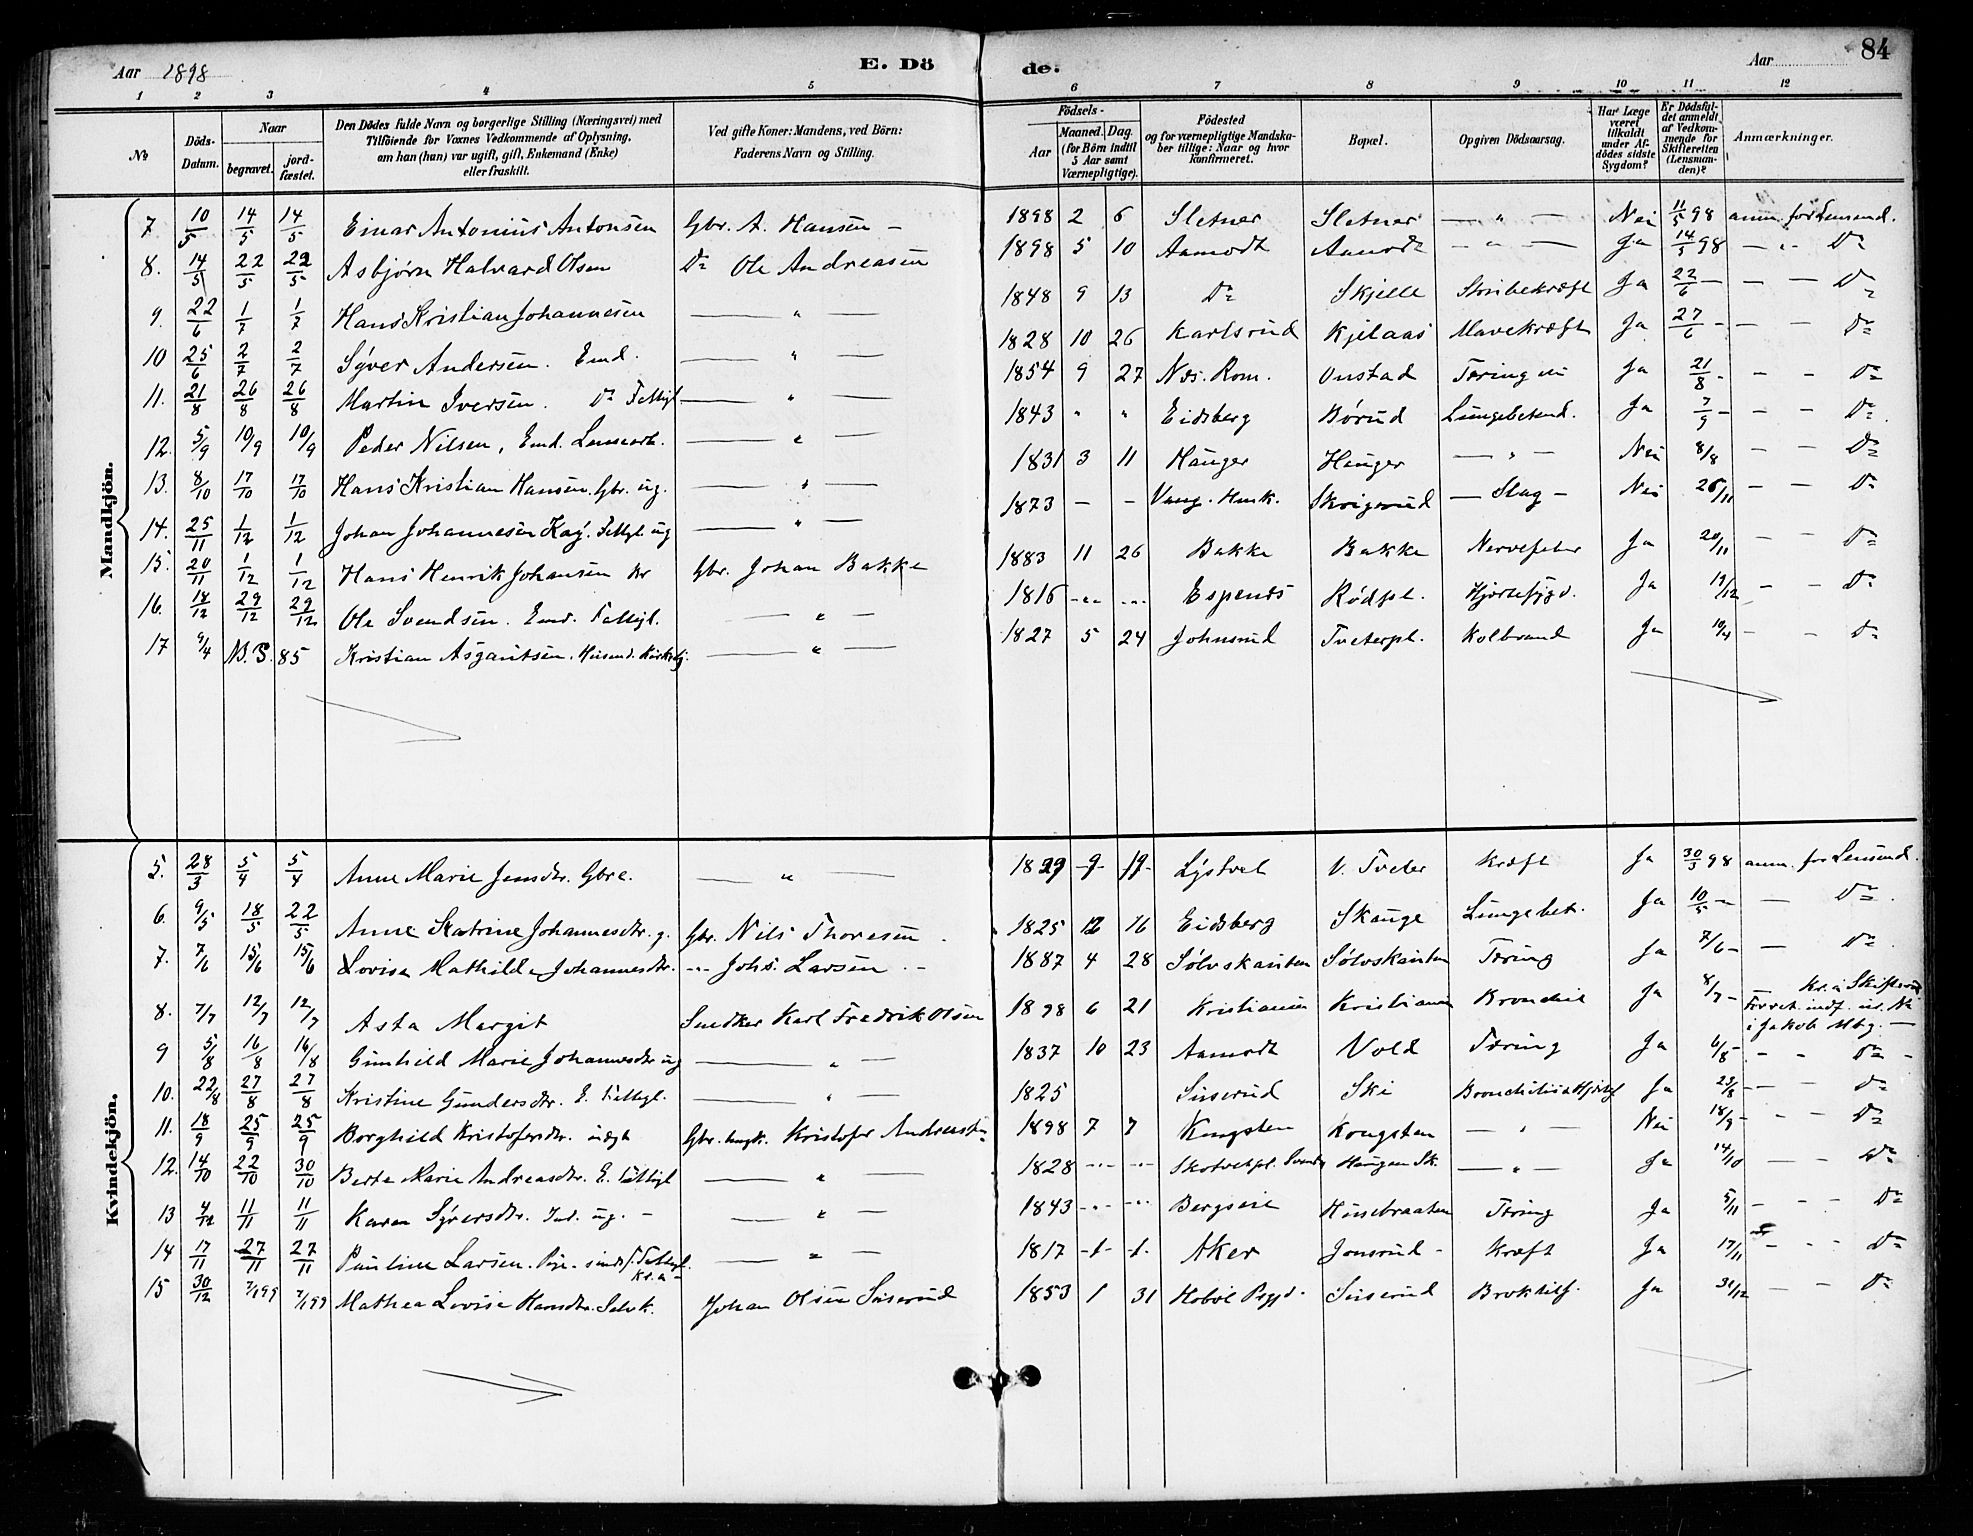 Aar 1898 E. Dö de. Aar 84
1 2 3 4 5 6 7 8 9 10 11 12
No Döds-Datum. Naar begravet. jordfæstet. Den Dödes fulde Navn og borgerlige Stilling (Næringsvei) med Tilföiende för Voxnes Vedkommende af Oplysning, om han (hun) var ugift, gift, Enkemand (Enke) eller fraskilt. Ved gifte Koner: Mandens, ved Börn: Faderens Navn og Stilling. Födsels- Aar Maaned. Dag. (for Börn indtil 5 Aar samt Værnepligtige). Födested og for værnepligtige Mandskaber tillige: Naar og hvor konfirmeret. Bopæl. Opgiven Dödsaarsag. Har Læge været tilkaldt under Afdödes sidste Sygdom? Er Dödsfuldet anmeldt af Vedkommende for Skifteretten (Lensmanden)? Anmærkninger.
Mandkjön.
7. 10/5 14/5 14/5 Einar Antonius Antonsen Gbr. A. Hansen – 1898 2 6 Sletner Sletner — " — Nei 11/5 98 anm. for Lensmd.
8. 14/5 22/5 22/5 Asbjørn Halvard Olsen Do Ole Andreasen 1898 5 10 Aamodt Aamodt — " — Ja 14/5 98 — " Do
9. 22/6 1/7 1/7 Hans Kristian Johannesen — " — 1848 9 13 Do Skjelle Strubekræft Ja 22/6 — — — Do
10 25/6 2/7 2/7 Syver Andersen. Emd. — " — 1828 10 26 Karlsrud Kjelaas Mavekræft Ja 27/6 — — — Do
11. 21/8 26/8 26/8 Martin Iversen. Do Fattigl. — " — 1854 9 27 Nes. Rom. Onstad Tæring Ja 21/8 - — — Do
12. 5/9 10/9 10/9 Peder Nilsen, Emd. — " — 1843 " " Eidsberg Børud Lungebetend. Ja 7/9 — — — Do
13. 8/10 17/10 17/10 Hans Kristian Hansen. Gbr. ug. — " — 1831 3 11 Hauger Hauger — " — Nei 8/8 — — Do
14. 25/11 1/12 1/12 Johan Johannesen Kay. Fattigl. ug — " — 1873 — — Vang. Skrigsrud — Slag — Nei 26/11 — — Do
15. 20/11 1/12 1/12 Hans Henrik Johansen Gbr. Johan Bakke 1883 11 26 Bakke Bakke Nervefeber Ja 20/11 — — Do
16. 18/12 29/12 29/12 Ole Svendsen. Emd. Fattigl. — " — 1816 -"- -"- Espenes Rødspl. Hjertesygd. Ja 19/12 — — Do
17 9/4 N.B. S. 85 Kristian Asgautsen. Husmd. — " — 1827 5 24 Johnsrud Tveterpl. Kolbrand Ja 10/4 — — Do
Kvindekjön.
5. 28/3 5/4 5/4 Anne Marie Jensdtr. Gbre. — " — 1829 9 19 Lystvet V. Tveter Kræft Ja 30/3 98 anm. for Lensmd.
6. 9/5 18/5 22/5 Anne Katrine Johannesdtr. g. Gbr. Nils Thoresen 1825 12 16 Eidsberg Skauge Lungebet. Ja 10/5 — — Do
7. 7/6 15/6 15/6 Lovise Mathilde Johannesdtr. -"- Johs. Larsen 1887 4 28 Sølvskauten Sølvskauten Tæring Ja 7/6 — — Do
8. 7/7 12/7 12/7 Asta Margit Snedker Karl Fredrik Olsen 1898 6 21 Kristiania Kristiania Ja 8/7 — Kr.a
i Jakob Mbg. —
9 5/8 16/8 16/8 Gunhild Marie Johannesdtr. ug — " — 1837 10 23 Aamodt Vold Tæring Ja 6/8 — — — Do
10. 22/8 27/8 27/8 Kristine Gundersdtr. E. Fattigl. — " — 1825 Siiserud Ski Ja 23/8 — — Do
11. 18/9 25/9 25/9 Borghild Kristofersdtr. Gbr. ungk. Kristofer Andreassen 1898 7 7 Kongsten Kongsten — " — Nei 18/9 — — — Do
12. 14/10 22/10 30/10 Berte Marie Andreasdtr. E. Fattigl — " — 1828 -"- -"- Skotvetpl. Haugen Sk. — " — Ja 14/10 — — Do
13 4/12 11/11 11/11 Karen Syversdtr. Ind. ug. — — " — 1843 -"- -"- Husebraaten Tæring Ja 5/11 — — — Do
14 17/11 27/11 27/11 Pauline Larsen. Pige. Fattigl. Kr.a — " — 1817 Aker Jonsrud Kræft Ja 17/11 — — Do
15 30/12 7/1 99 7/1 99 Mathea Lovise Hansdtr. Johan Olsen Siiserud 1853 1 31 Hobøl Siiserud Ja 31/12 — — Do